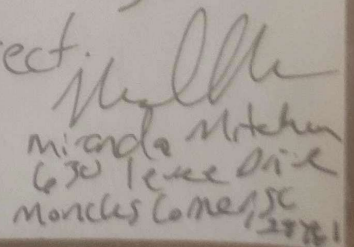 ect.
Miranda Mitchum
630 levee Drive
Moncks Corner, SC
29461